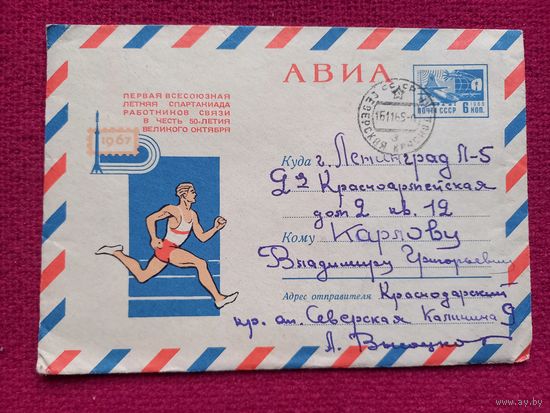 АВИА
ПЕРВАЯ ВСЕСОЮЗНАЯ
ЛЕТНЯЯ СПАРТАКИАДА
РАБОТНИКОВ СВЯЗИ
В ЧЕСТЬ 50-ЛЕТИЯ
ВЕЛИКОГО ОКТЯБРЯ
1967
ПОЧТА СССР 6 КОП.
СЕВЕРСКАЯ
Куда г. Ленинград Л-5
Красноармейская
дом 2 кв. 12
Кому Карлову
Владимиру Григорьевичу
Адрес отправителя Краснодарский
кр. ст. Северская Калинина 9
www.ay.by